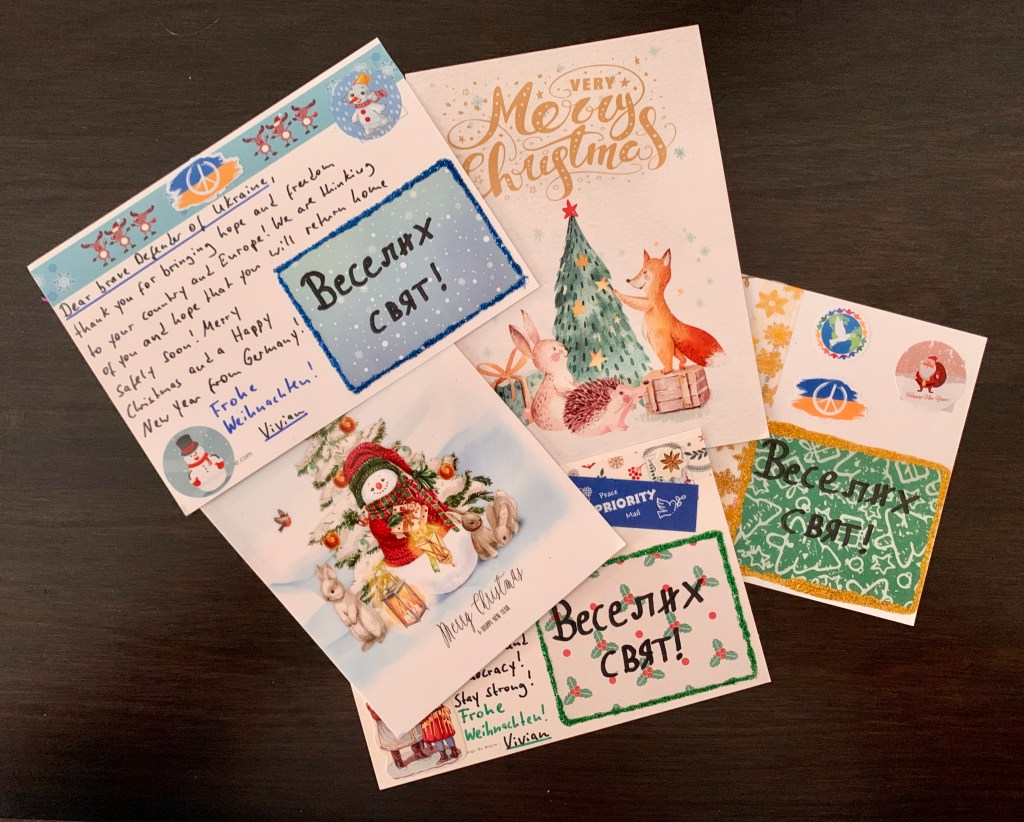 Dear brave Defender of Ukraine,
thank you for bringing hope and freedom
to your country and Europe! We are thinking
of you and hope that you will return home
safely soon! Merry
Christmas and a Happy
New Year from Germany!
Frohe
Weihnachten!
Vivian
Веселих
свят!
VERY
Merry
Christmas
Merry Christmas
& HAPPY NEW YEAR
Peace
PRIORITY
Mail
Веселих
свят!
and
Stay strong!
Frohe
Weihnachten!
Vivian
Веселих
свят!